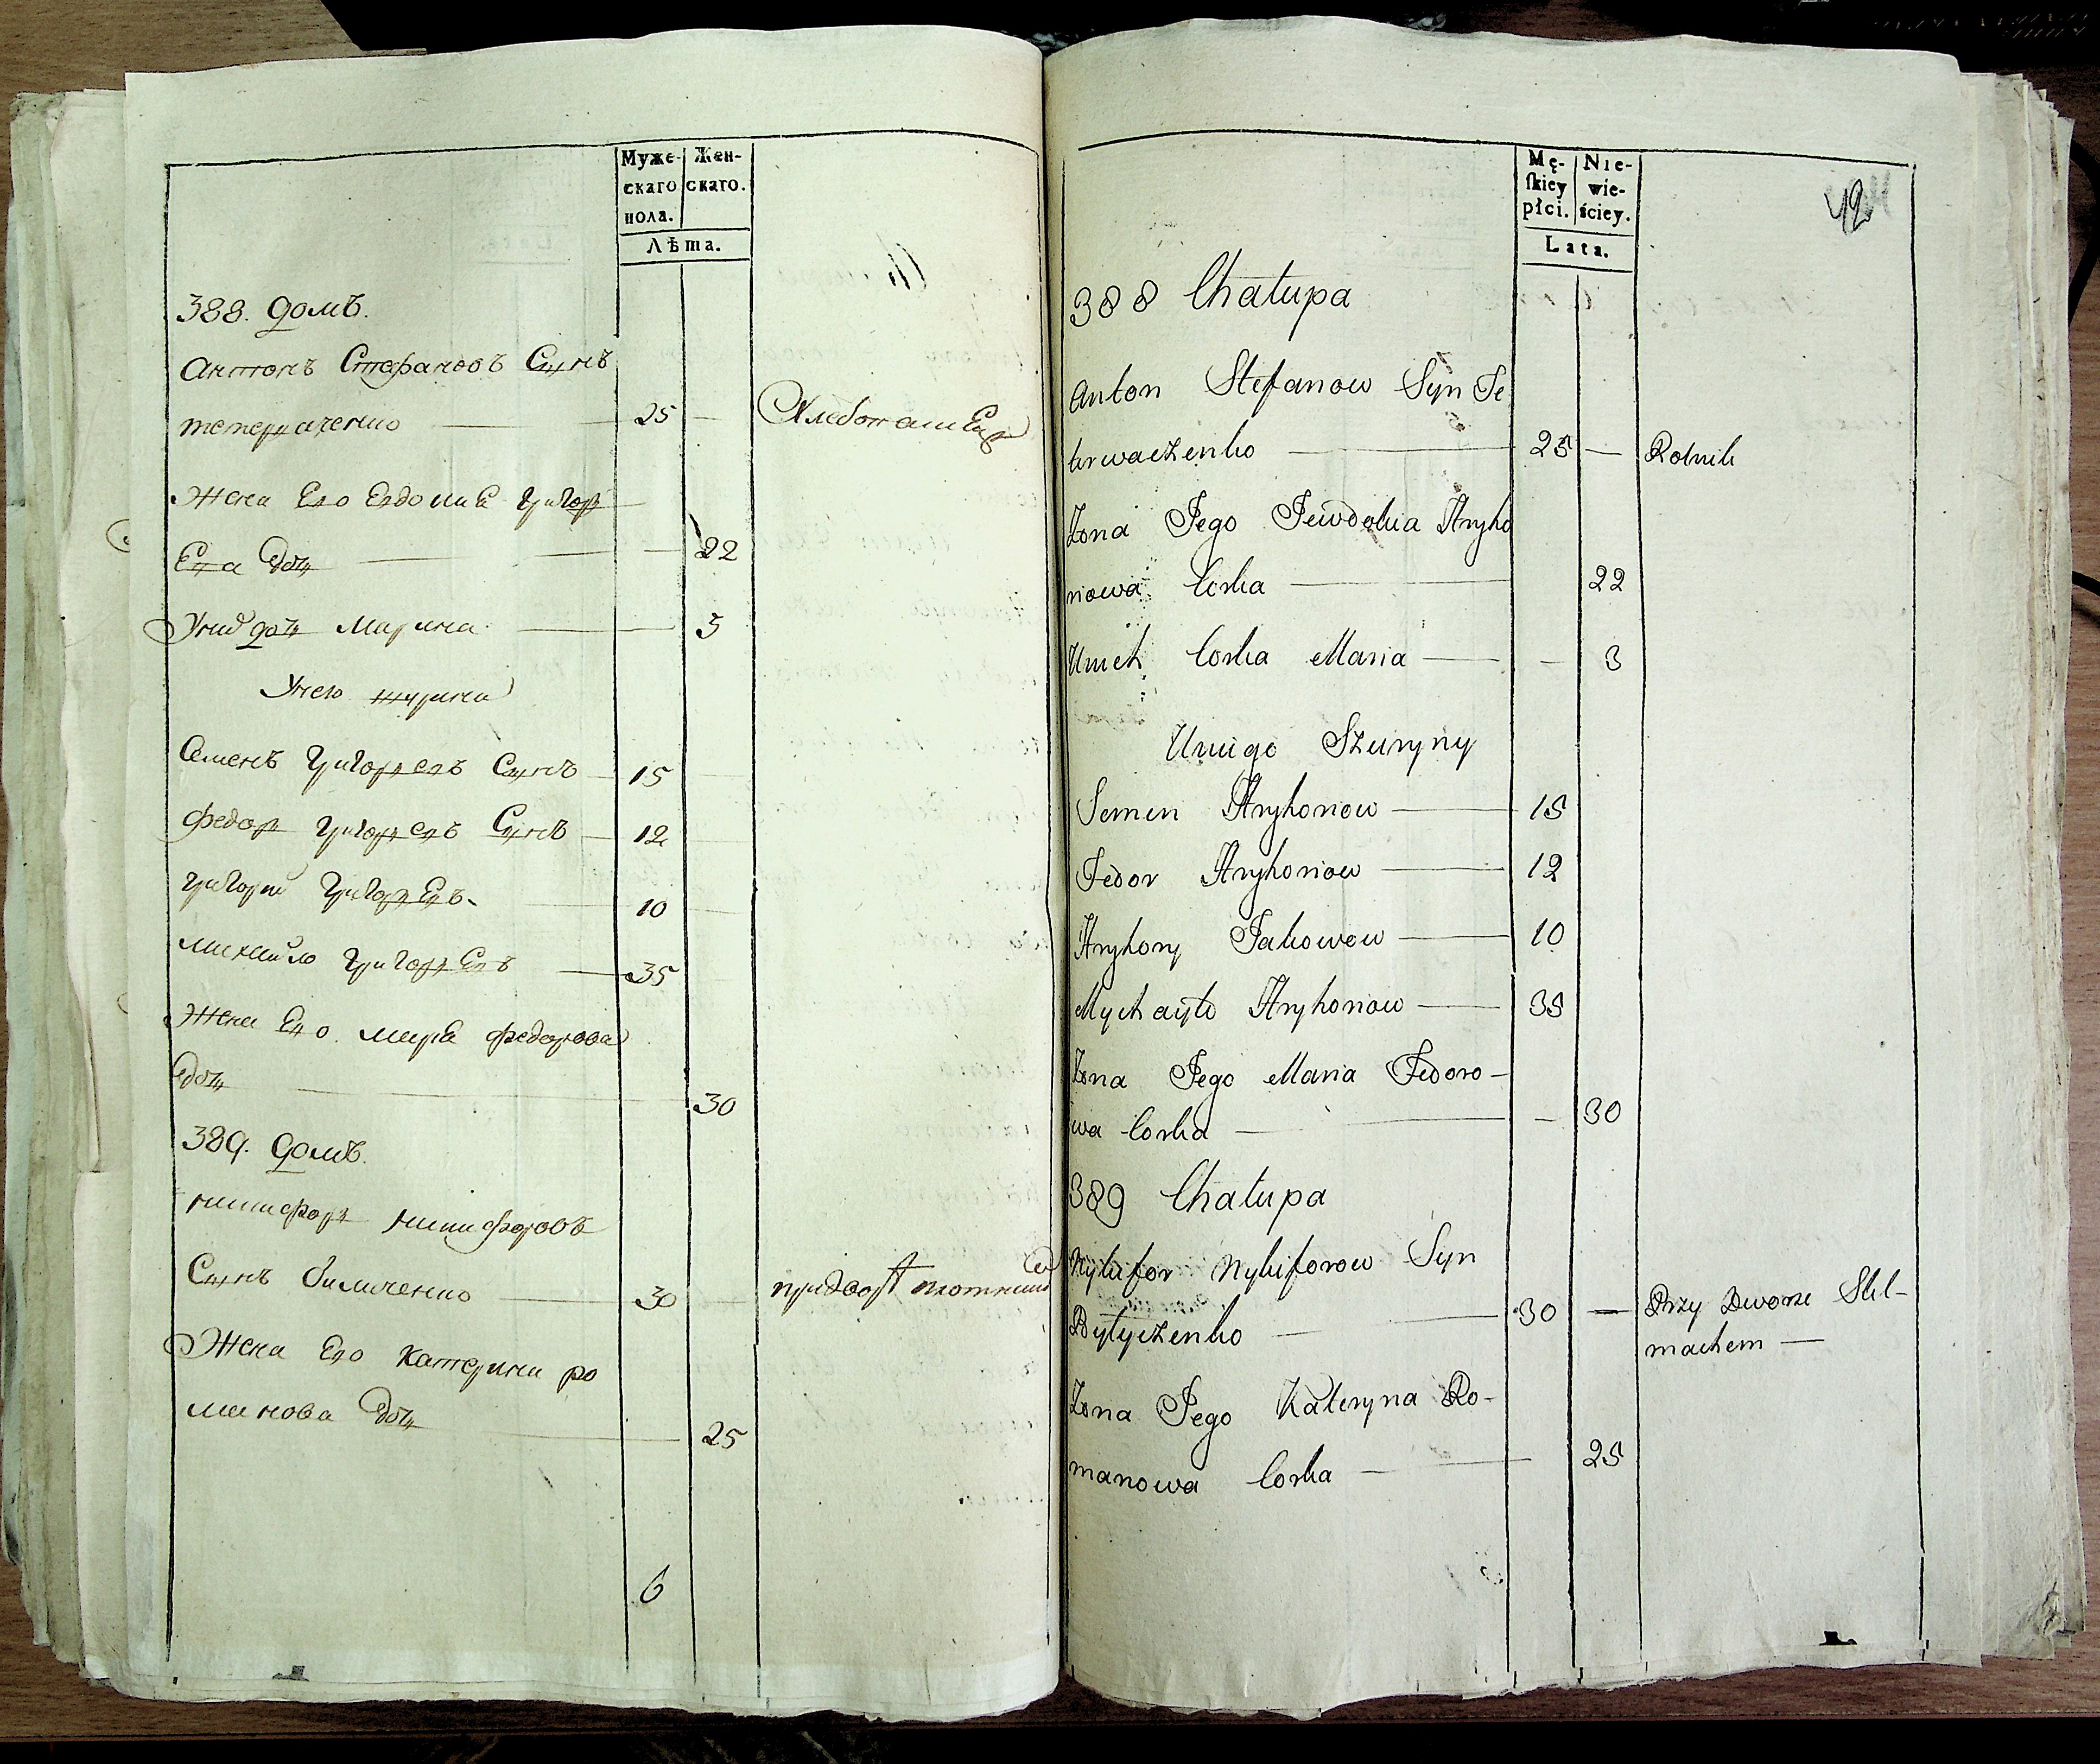 Муже-
скаго
пола.
Жен-
скаго.
Лѣта.
388. домъ.
Антонъ Стефановъ Сынъ
тетерваченко 25 —
Жена Его Евдокиѣ григор
Ева доч 22
Уних доч Марина 3
Унего шурина
Семенъ григорьевъ Сынъ 15
Федор григорьевъ Сынъ 12
григорий григорьевъ 10
михайло григорьевъ 35
Жена Его марѣ федорова
доч 30
389. домъ.
никифоръ никифоровъ
Сынъ биличенко 30
при двор
Жена Его катерина ро
манова доч 25
6
Mę-
ſkiey
płci.
Nie-
wie-
ściey.
Lata.
42
388 Chałupa
Anton Stefanow Syn Te
terwaczenko 25 — Rolnik
Żona Jego Jewdokia Hryho
riowa Corka 22
Unich Corka Maria — 3
Uniego Szuryny
Semen Hryhoriow 15
Fedor Hryhoriow 12
Hryhory Jakowow 10
Mychayło Hryhoriow 35
Żona Jego Maria Fedoro-
wa Corka — 30
389 Chałupa
Nykifor Nykiforow Syn
Byłyczenko 30 — Przy Dworze Stel-
machem —
Żona Jego Kateryna Ro-
manowa Corka 25